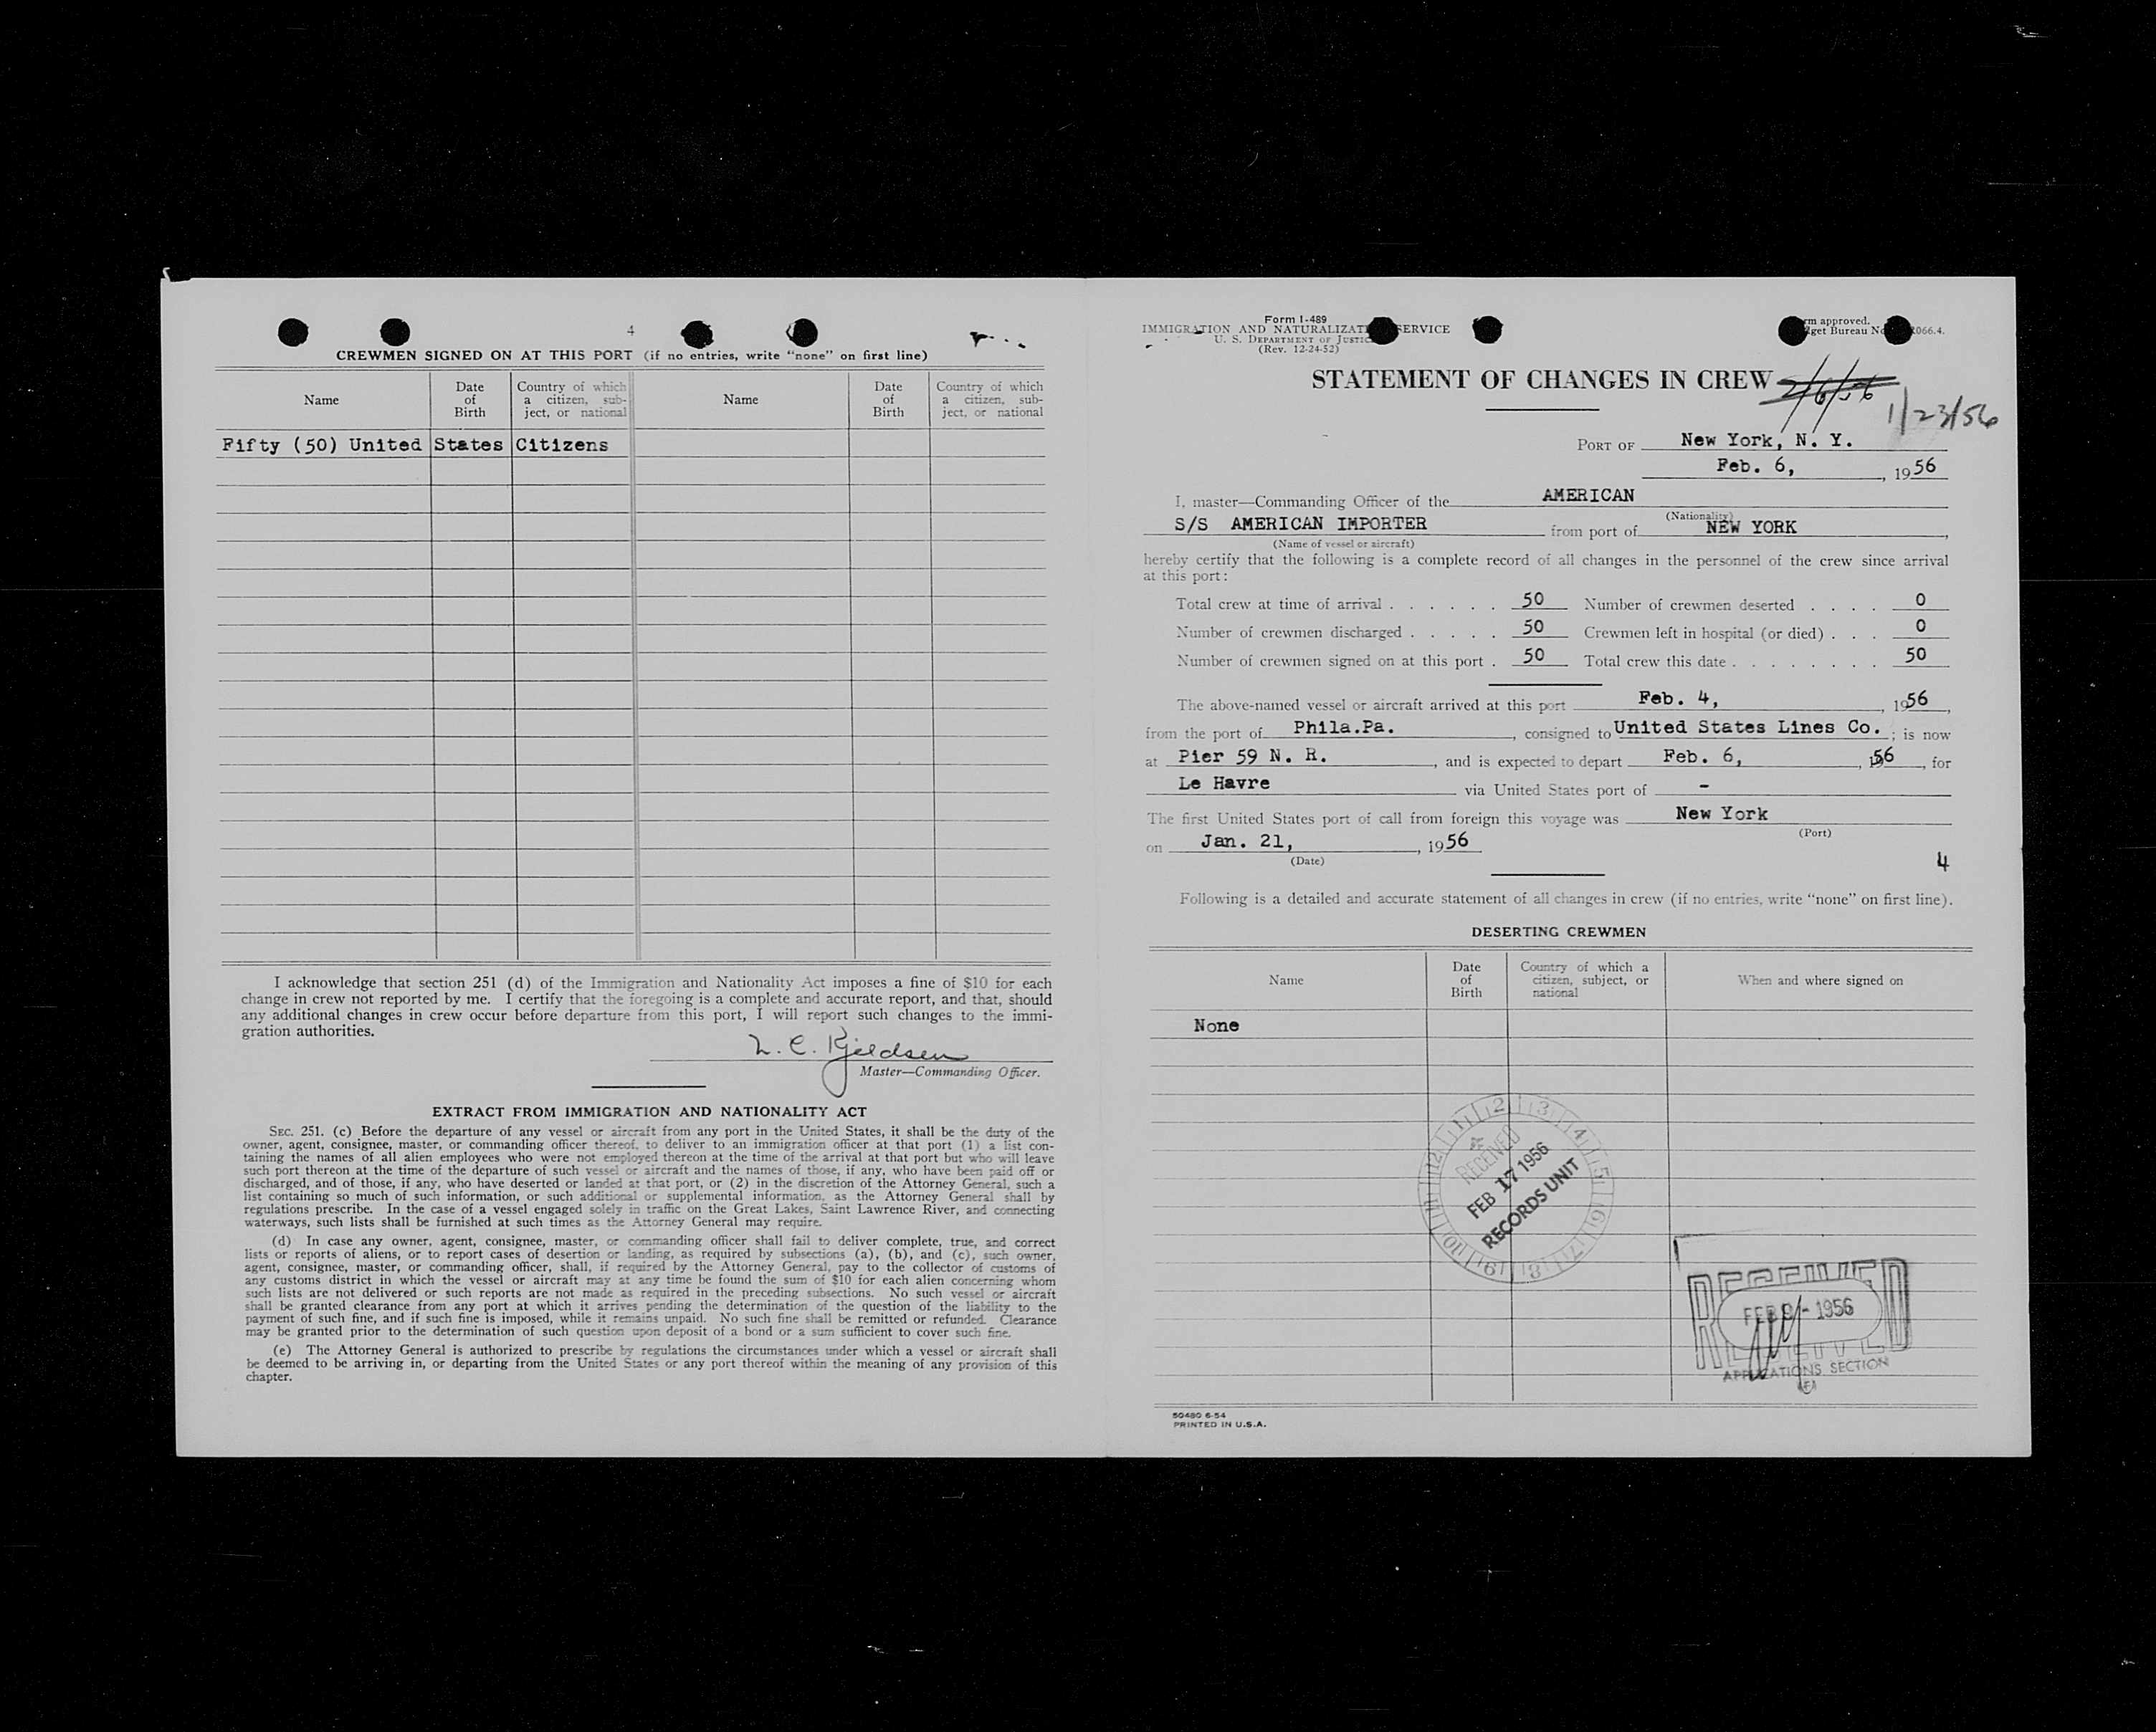 4
CREWMEN SIGNED ON AT THIS PORT (if no entries, write “none” on first line)
Name
Date of Birth
Country of which a citizen, subject, or national
Name
Date of Birth
Country of which a citizen, subject, or national
Fifty (50) United States Citizens
I acknowledge that section 251 (d) of the Immigration and Nationality Act imposes a fine of $10 for each
change in crew not reported by me. I certify that the foregoing is a complete and accurate report, and that, should
any additional changes in crew occur before departure from this port, I will report such changes to the immi-
gration authorities.
Kjeldsen
Master—Commanding Officer.
EXTRACT FROM IMMIGRATION AND NATIONALITY ACT
SEC. 251. (c) Before the departure of any vessel or aircraft from any port in the United States, it shall be the duty of the
owner, agent, consignee, master, or commanding officer thereof, to deliver to an immigration officer at that port (1) a list con-
taining the names of all alien employees who were not employed thereon at the time of the arrival at that port but who will leave
such port thereon at the time of the departure of such vessel or aircraft and the names of those, if any, who have been paid off or
discharged, and of those, if any, who have deserted or landed at that port, or (2) in the discretion of the Attorney General, such a
list containing so much of such information, or such additional or supplemental information, as the Attorney General shall by
regulations prescribe. In the case of a vessel engaged solely in traffic on the Great Lakes, Saint Lawrence River, and connecting
waterways, such lists shall be furnished at such times as the Attorney General may require.
(d) In case any owner, agent, consignee, master, or commanding officer shall fail to deliver complete, true, and correct
lists or reports of aliens, or to report cases of desertion or landing, as required by subsections (a), (b), and (c), such owner,
agent, consignee, master, or commanding officer, shall, if required by the Attorney General, pay to the collector of customs of
any customs district in which the vessel or aircraft may at any time be found the sum of $10 for each alien concerning whom
such lists are not delivered or such reports are not made as required in the preceding subsections. No such vessel or aircraft
shall be granted clearance from any port at which it arrives pending the determination of the question of the liability to the
payment of such fine, and if such fine is imposed, while it remains unpaid. No such fine shall be remitted or refunded. Clearance
may be granted prior to the determination of such question upon deposit of a bond or a sum sufficient to cover such fine.
(e) The Attorney General is authorized to prescribe by regulations the circumstances under which a vessel or aircraft shall
be deemed to be arriving in, or departing from the United States or any port thereof within the meaning of any provision of this
chapter.
Form I-489
IMMIGRATION AND NATURALIZAT SERVICE
U. S. DEPARTMENT OF JUSTIC
(Rev. 12-24-52)
rm approved.
get Bureau No 066.4.
STATEMENT OF CHANGES IN CREW
2/6/56
1/23/56
PORT OF New York, N. Y.
Feb. 6, , 1956
I, master—Commanding Officer of the AMERICAN
(Nationality)
S/S AMERICAN IMPORTER from port of NEW YORK,
(Name of vessel or aircraft)
hereby certify that the following is a complete record of all changes in the personnel of the crew since arrival
at this port:
Total crew at time of arrival . . . . . . 50 Number of crewmen deserted . . . . 0
Number of crewmen discharged . . . . . 50 Crewmen left in hospital (or died) . . . 0
Number of crewmen signed on at this port . 50 Total crew this date . . . . . . . . 50
The above-named vessel or aircraft arrived at this port Feb. 4, , 1956,
from the port of Phila.Pa. , consigned to United States Lines Co. ; is now
at Pier 59 N. R. , and is expected to depart Feb. 6, , 56 , for
Le Havre via United States port of -
The first United States port of call from foreign this voyage was New York
(Port)
on Jan. 21, , 1956
(Date)
4
Following is a detailed and accurate statement of all changes in crew (if no entries, write “none” on first line).
DESERTING CREWMEN
Name
Date of Birth
Country of which a citizen, subject, or national
When and where signed on
None
1 2 3 4 5 6 7 8 9 10 11 12
RECEIVED
FEB 17 1956
RECORDS UNIT
RECEIVED
FEB - 1956
APPLICATIONS SECTION
50480 6-54
PRINTED IN U.S.A.